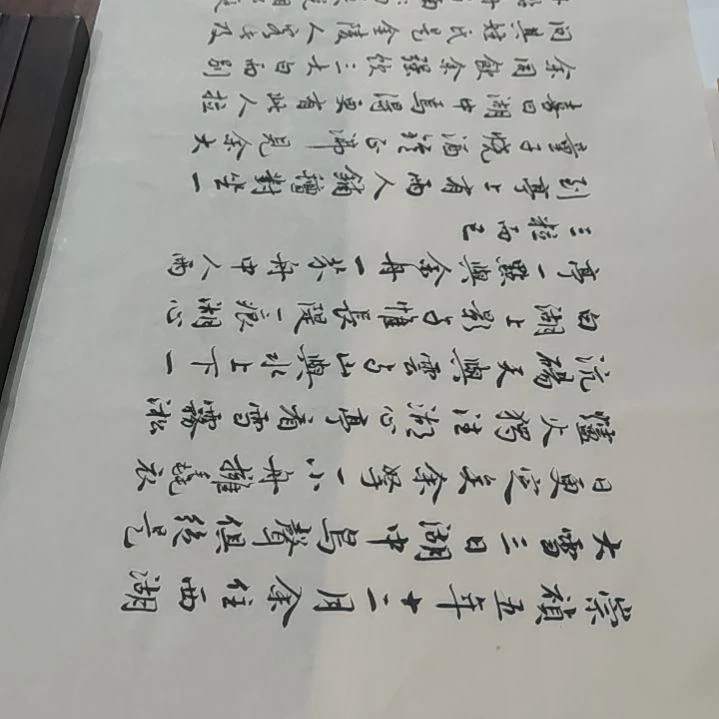 崇禎五年十二月余住西湖
大雪三日湖中鳥聲俱絕是
日更定矣余拏一小舟擁毳衣
爐火獨往湖心亭看雪霧淞
沆碭天與雲与山與水上下一
白湖上影子惟長堤一痕湖心
亭一點與余舟一芥舟中人兩
三粒而已
到亭上有兩人鋪氊對坐一
童子燒酒爐正沸見余大
喜曰湖中焉得更有此人拉
余同飲余强飲三大白而別
問其姓氏是金陵人客此及